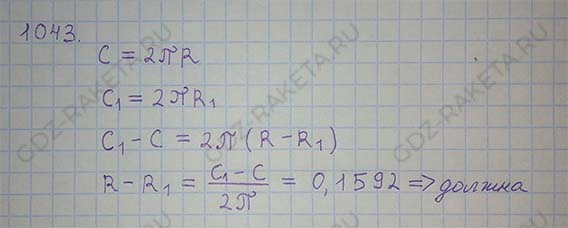 1043.
C = 2πR
C₁ = 2πR₁
C₁ – C = 2π (R – R₁)
R – R₁ = (C₁ – C)/2π = 0,1592 => должна
GDZ-RAKETA.RU
GDZ-RAKETA.RU
GDZ-RAKETA.RU
GDZ-RAKETA.RU